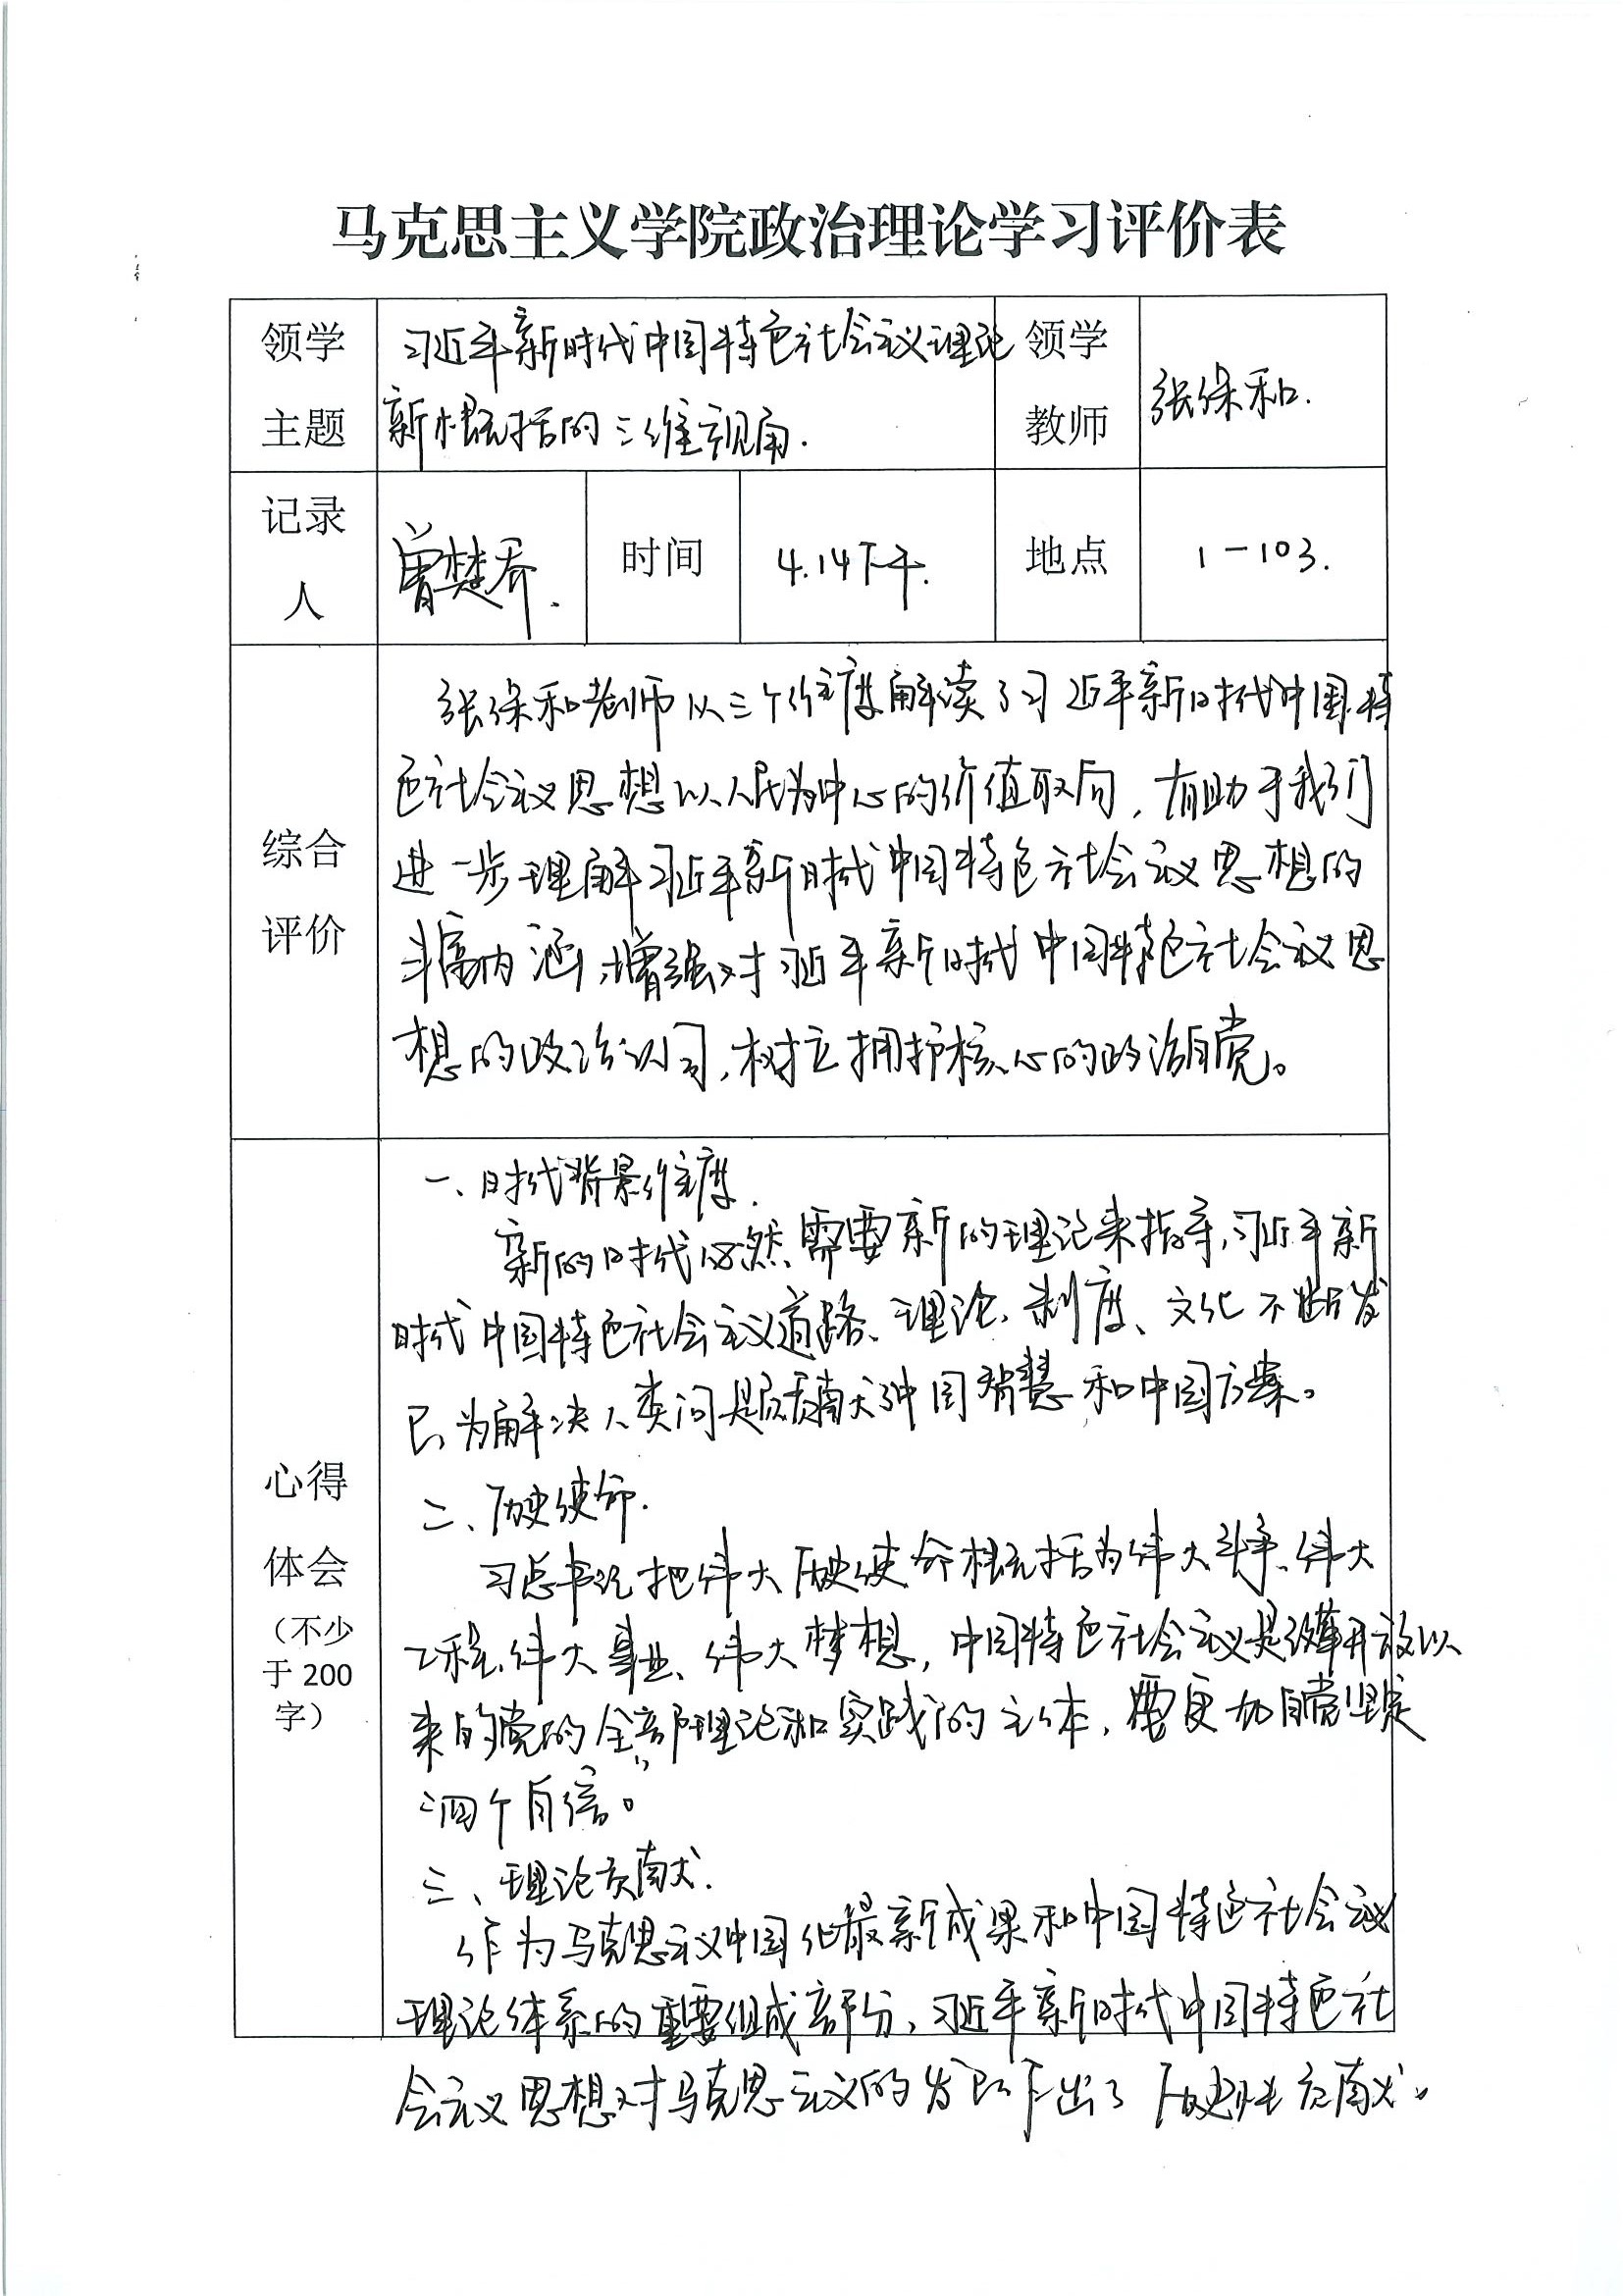 马克思主义学院政治理论学习评价表
领学主题
习近平新时代中国特色社会主义理论
新概括的三维视角.
领学教师
张保和.
记录人
曾楚乔.
时间
4.14下午.
地点
1-103.
综合评价
张保和老师从三个维度解读了习近平新时代中国特
色社会主义思想以人民为中心的价值取向,有助于我们
进一步理解习近平新时代中国特色社会主义思想的
丰富内涵,增强对习近平新时代中国特色社会主义思
想的政治认同,树立拥护核心的政治自觉。
心得体会
(不少于200字)
一、时代背景维度.
新的时代必然需要新的理论来指导,习近平新
时代中国特色社会主义道路、理论、制度、文化不断发
展,为解决人类问题贡献了中国智慧和中国方案。
二、历史使命.
习总书记把伟大历史使命概括为伟大斗争、伟大
工程、伟大事业、伟大梦想,中国特色社会主义是改革开放以
来的党的全部理论和实践的主体,要更加自觉坚定
“四个自信”。
三、理论贡献.
作为马克思主义中国化最新成果和中国特色社会主义
理论体系的重要组成部分,习近平新时代中国特色社
会主义思想对马克思主义的发展作出了历史性贡献。